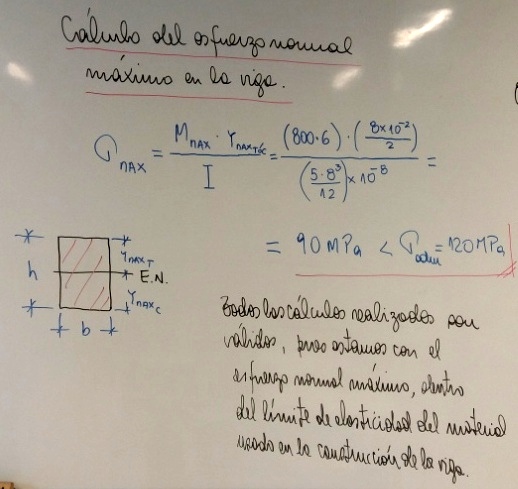 Cálculo del esfuerzo normal
máximo en la viga.
σmax = Mmax · Ymax TóC / I = (800·6)·(8x10⁻²/2) / (5·8³/12)x10⁻⁸ =
= 90 MPa < σadm = 120 MPa
h
YmaxT
E.N.
YmaxC
b
Todos los cálculos realizados son
válidos, pues estamos con el
esfuerzo normal máximo, dentro
del límite de elasticidad del material
usado en la construcción de la viga.